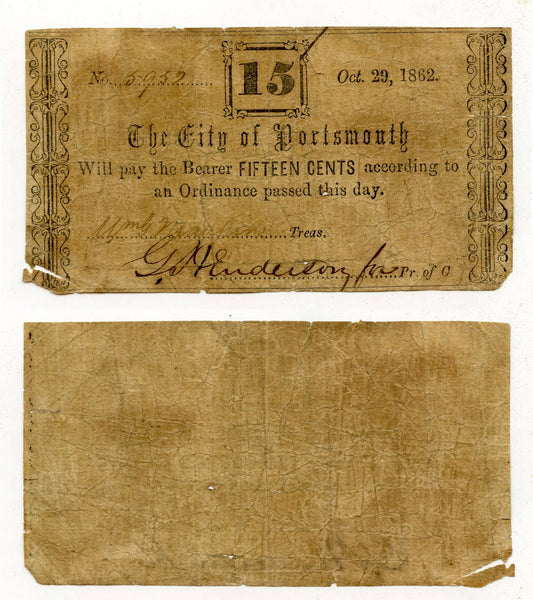 No. 5952
15
Oct. 29, 1862.
The City of Portsmouth
Will pay the Bearer FIFTEEN CENTS according to
an Ordinance passed this day.
Treas.
G. Henderson for Pr. of C